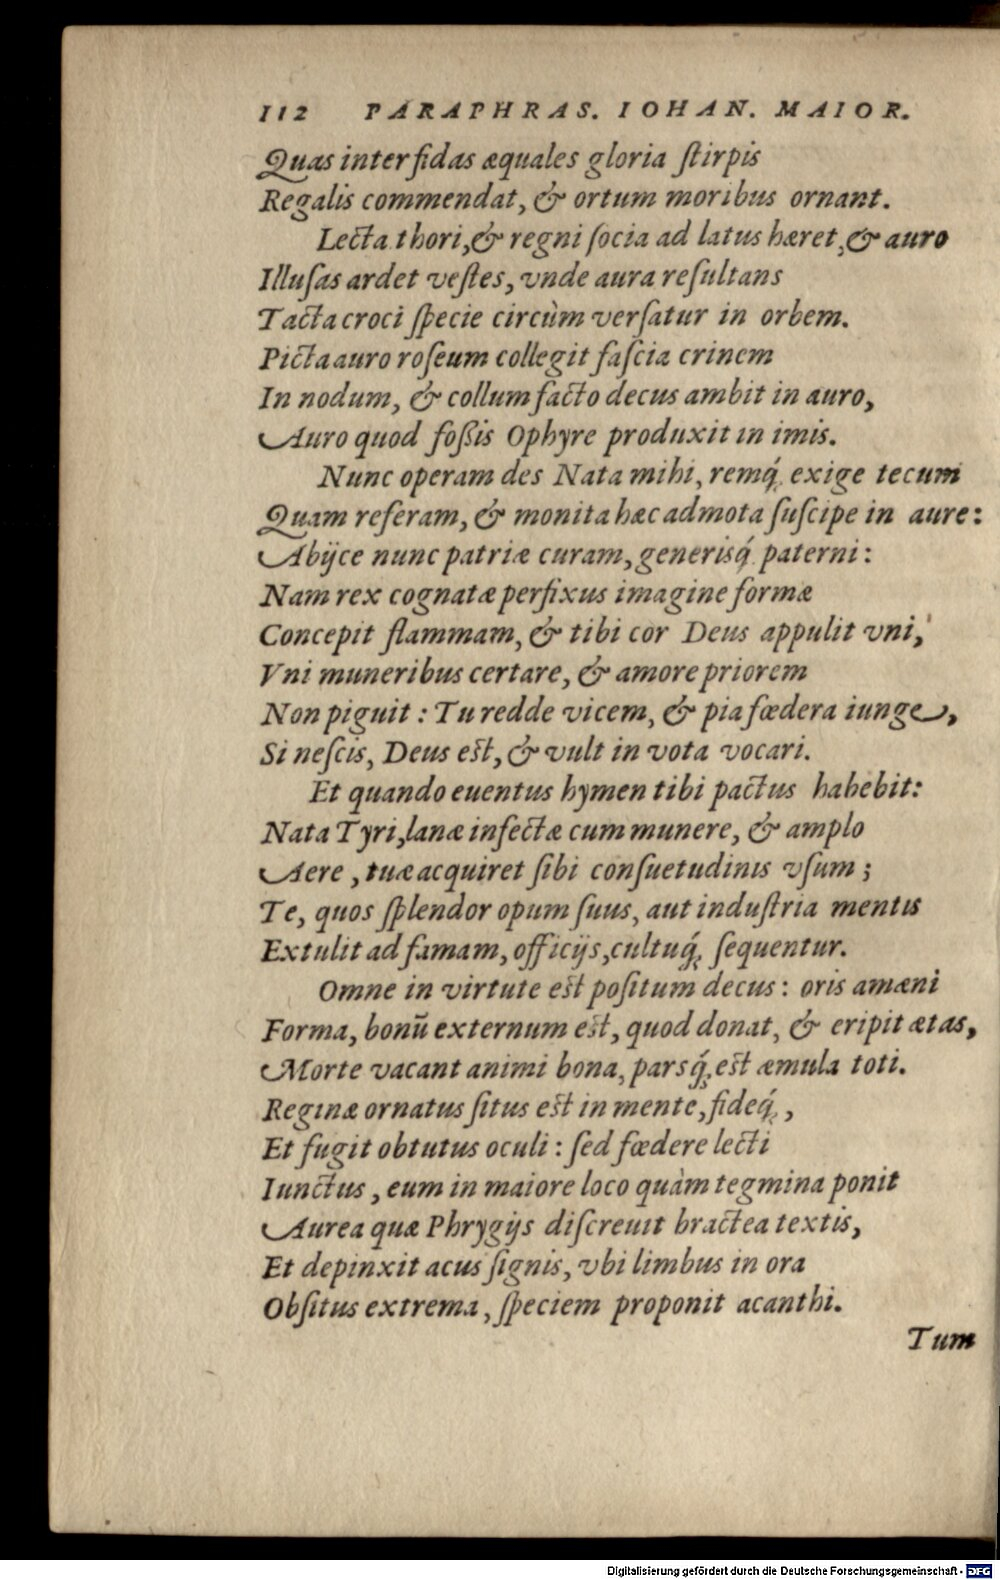 112 PARAPHRAS. IOHAN. MAIOR.
Quas inter fidas æquales gloria ſtirpis
Regalis commendat, & ortum moribus ornant.
Lecta thori, & regni ſocia ad latus hæret, & auro
Illuſas ardet veſtes, vnde aura reſultans
Tacta croci ſpecie circùm verſatur in orbem.
Picta auro roſeum collegit faſcia crinem
In nodum, & collum facto decus ambit in auro,
Auro quod foßis Ophyre produxit in imis.
Nunc operam des Nata mihi, remq́; exige tecum
Quam referam, & monita hæc admota ſuſcipe in aure:
Abijce nunc patriæ curam, generisq́; paterni:
Nam rex cognatæ perfixus imagine formæ
Concepit flammam, & tibi cor Deus appulit vni,
Vni muneribus certare, & amore priorem
Non piguit: Tu redde vicem, & pia fœdera iunge,
Si neſcis, Deus est, & vult in vota vocari.
Et quando euentus hymen tibi pactus habebit:
Nata Tyri, lanæ infectæ cum munere, & amplo
Aere, tuæ acquiret ſibi conſuetudinis vſum;
Te, quos ſplendor opum ſuus, aut induſtria mentis
Extulit ad famam, officijs, cultuq́; ſequentur.
Omne in virtute est poſitum decus: oris amæni
Forma, bonū externum est, quod donat, & eripit ætas,
Morte vacant animi bona, parsq́; est æmula toti.
Reginæ ornatus ſitus est in mente, fideq́;,
Et fugit obtutus oculi: ſed fœdere lecti
Iunctus, eum in maiore loco quàm tegmina ponit
Aurea quæ Phrygijs diſcreuit bractea textis,
Et depinxit acus ſignis, vbi limbus in ora
Obſitus extrema, ſpeciem proponit acanthi.
Tum
Digitalisierung gefördert durch die Deutsche Forschungsgemeinschaft - DFG